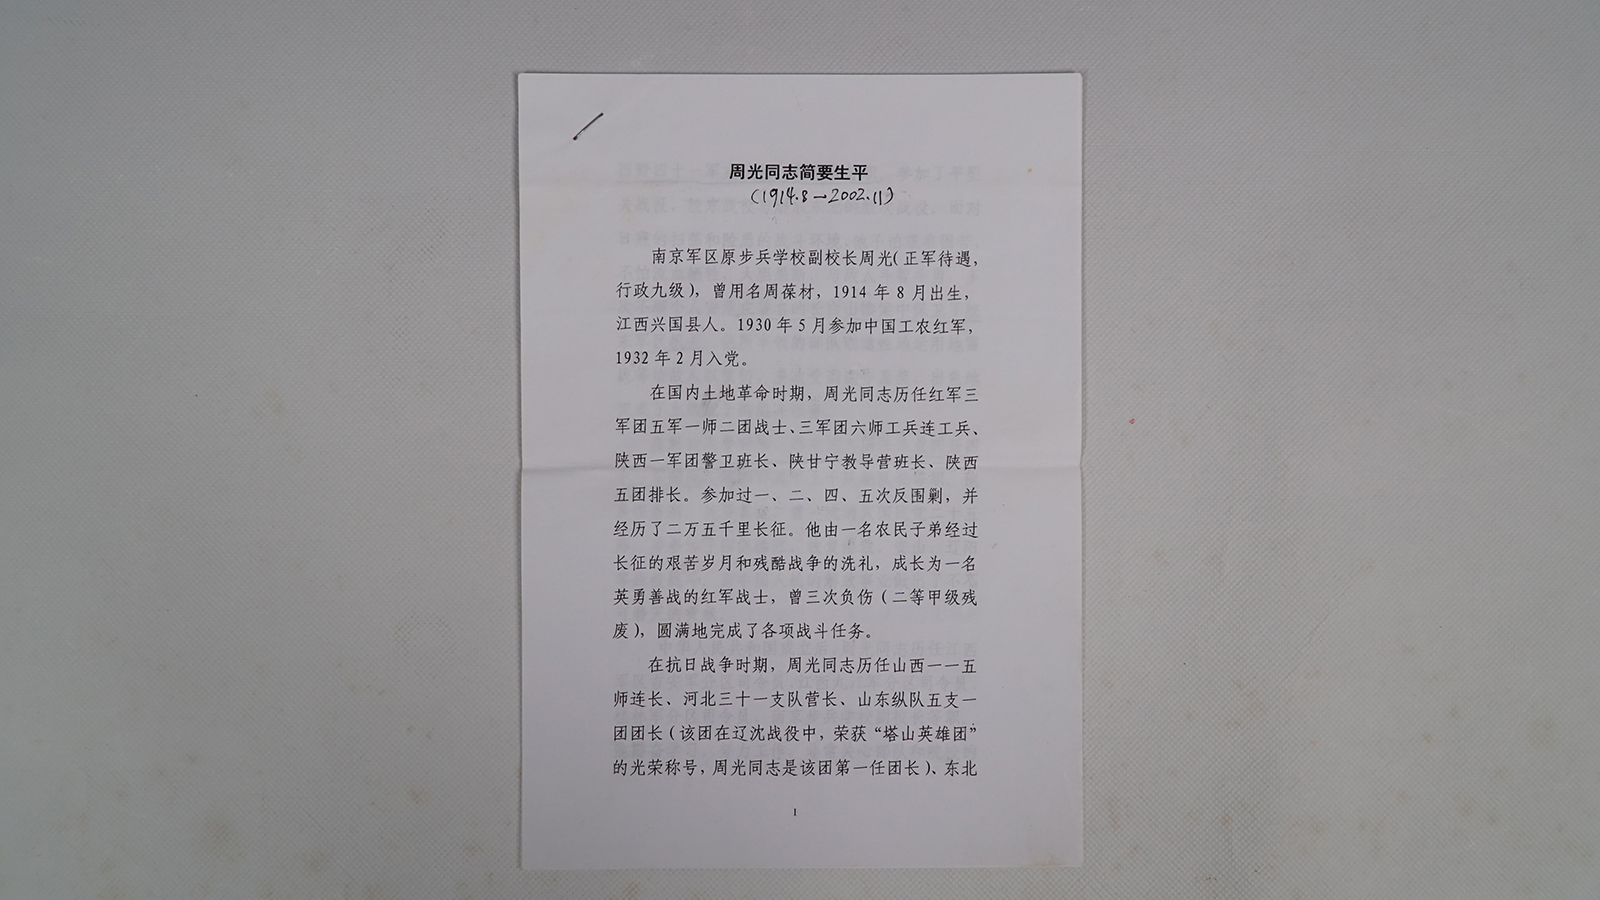 周光同志简要生平
（1914.8—2002.11）
南京军区原步兵学校副校长周光（正军待遇，
行政九级），曾用名周葆材，1914 年 8 月出生，
江西兴国县人。1930 年 5 月参加中国工农红军，
1932 年 2 月入党。
在国内土地革命时期，周光同志历任红军三
军团五军一师二团战士、三军团六师工兵连工兵、
陕西一军团警卫班长、陕甘宁教导营班长、陕西
五团排长。参加过一、二、四、五次反围剿，并
经历了二万五千里长征。他由一名农民子弟经过
长征的艰苦岁月和残酷战争的洗礼，成长为一名
英勇善战的红军战士，曾三次负伤（二等甲级残
废），圆满地完成了各项战斗任务。
在抗日战争时期，周光同志历任山西一一五
师连长、河北三十一支队营长、山东纵队五支一
团团长（该团在辽沈战役中，荣获“塔山英雄团”
的光荣称号，周光同志是该团第一任团长）、东北
1